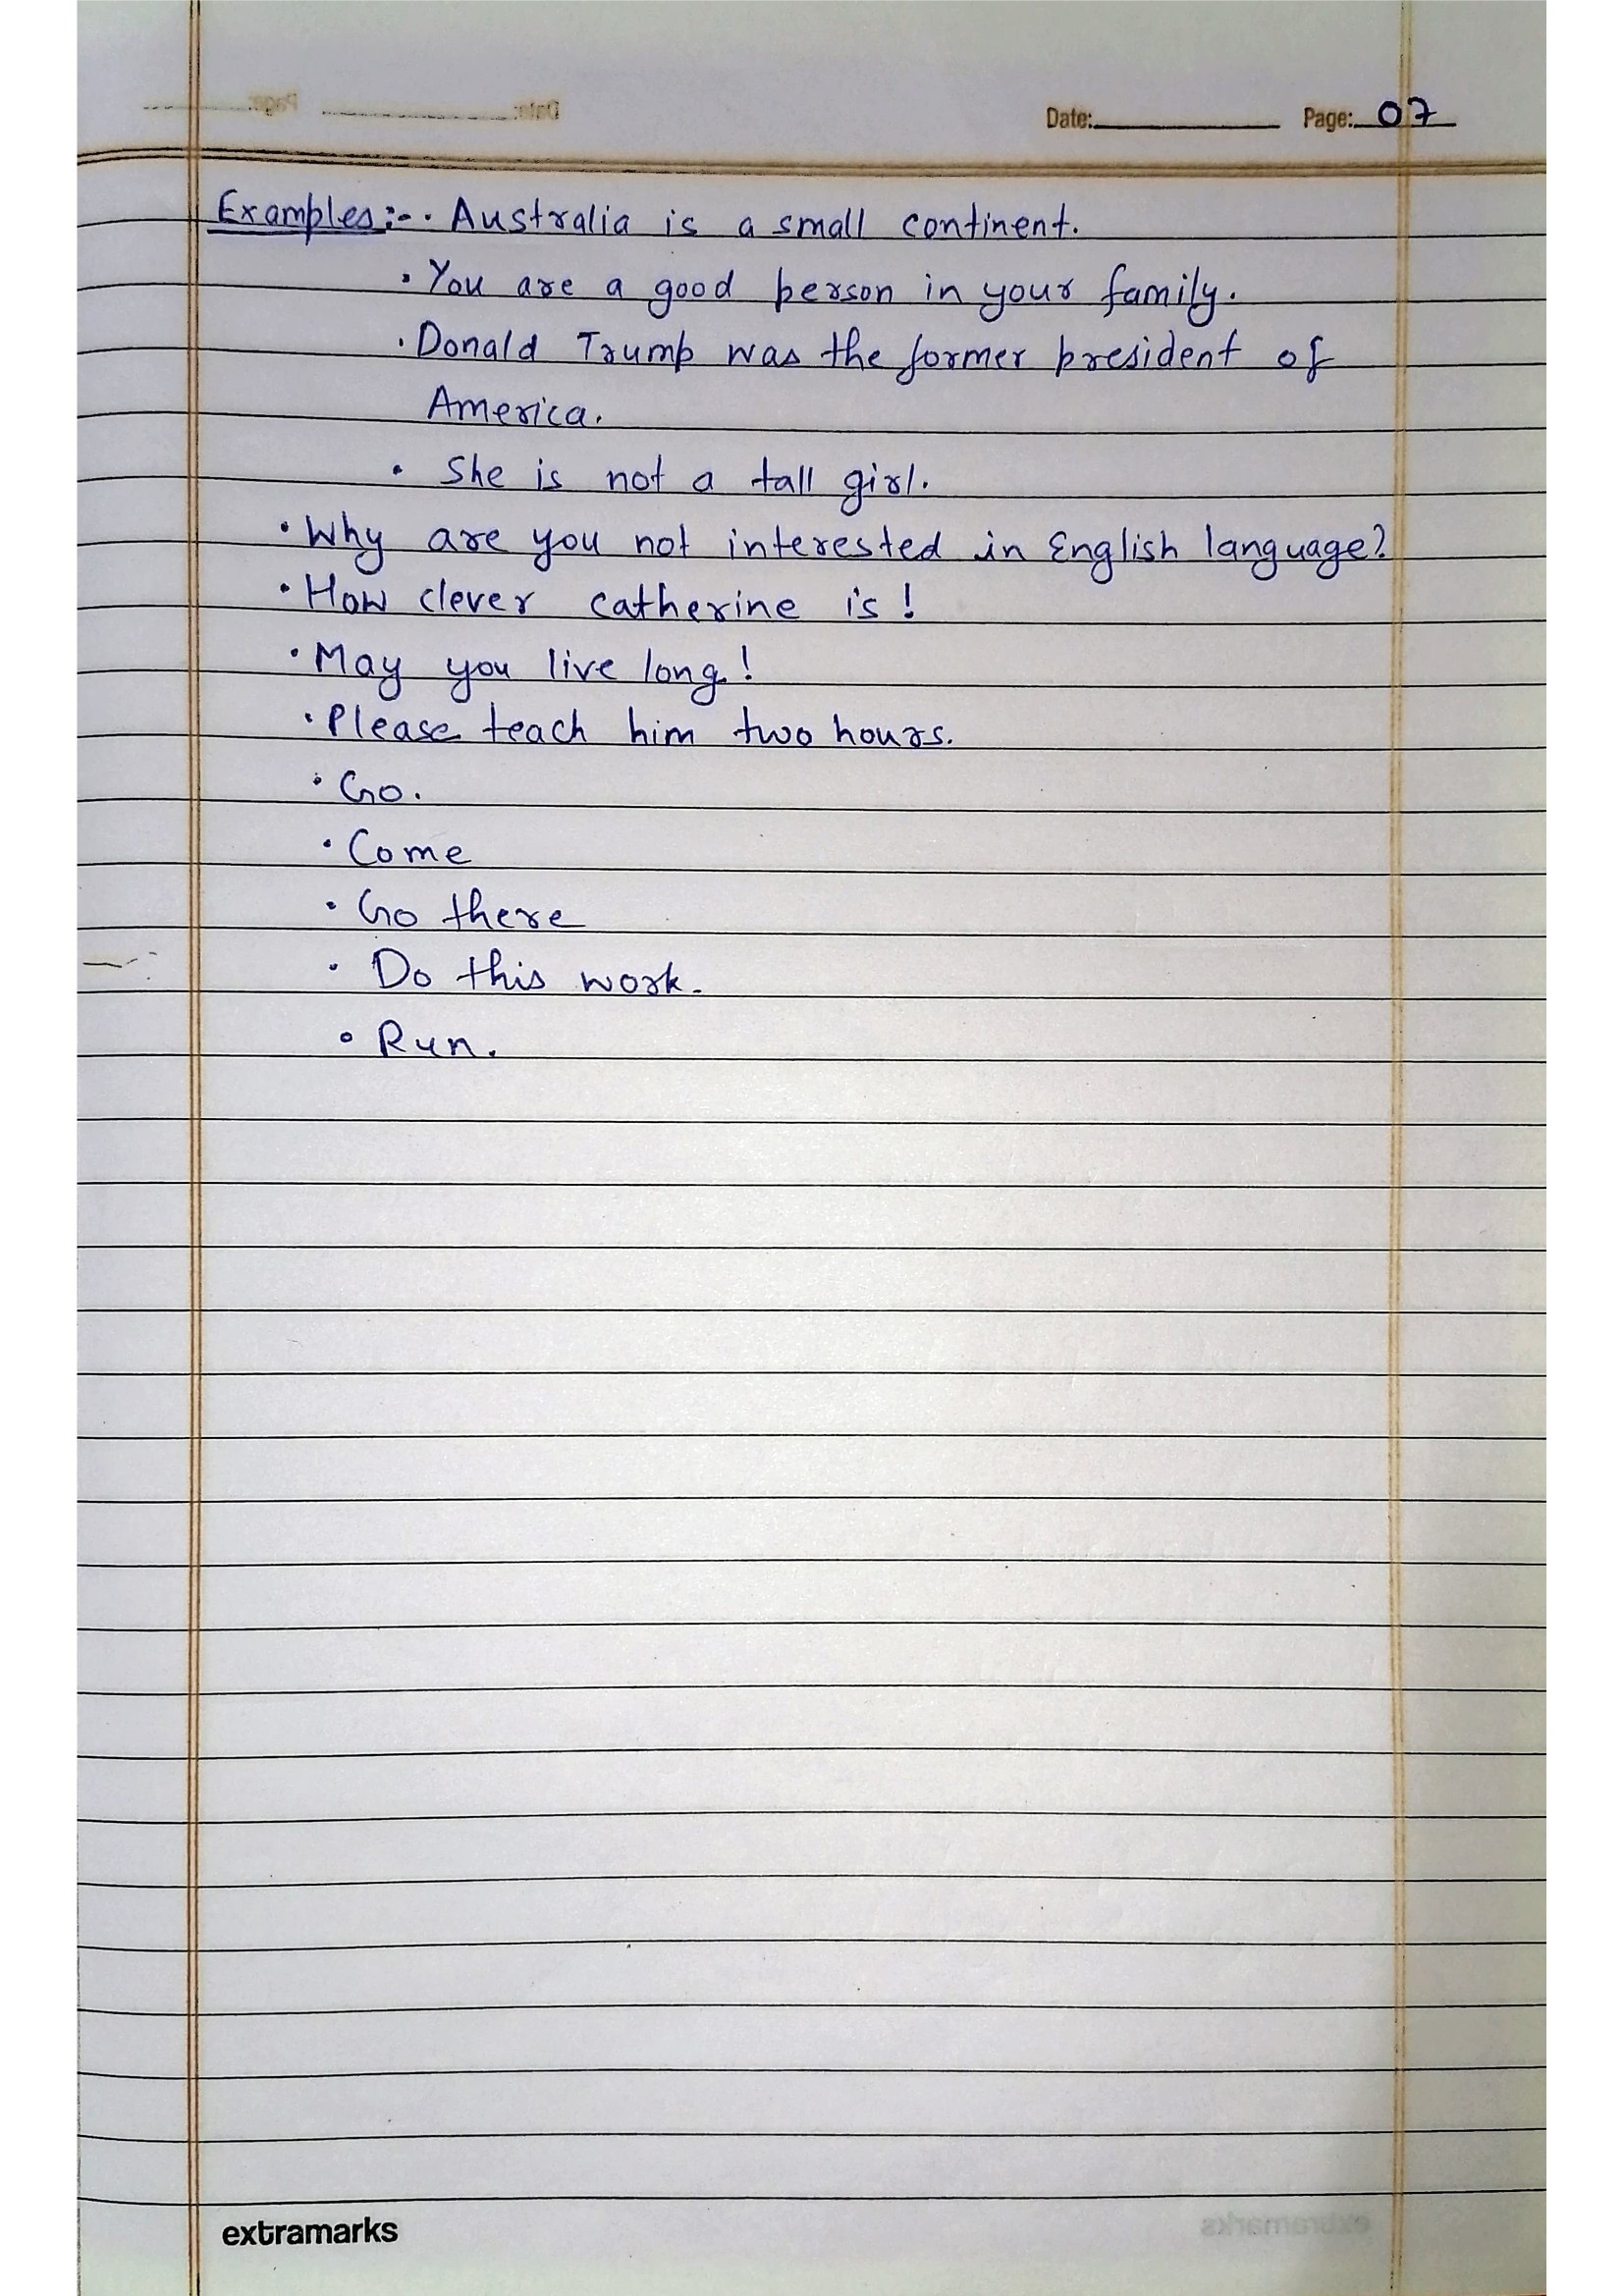 Date: Page: 07
Examples:- · Australia is a small continent.
· You are a good person in your family.
· Donald Trump was the former president of
America.
· She is not a tall girl.
· Why are you not interested in English language?
· How clever catherine is!
· May you live long!
· Please teach him two hours.
· Go.
· Come
· Go there
· Do this work.
· Run.
extramarks